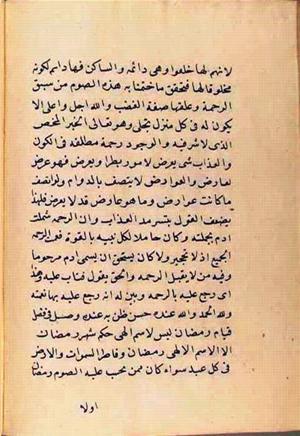 لانهم لها خلقوا وهى دائمة والساكن فيها دايم لكونه
مخلوقا لها فتحقق ما ختمنا به هذه الصوم من سبق
الرحمة وغلبها صفة الغضب والله اجل واعلى الا
يكون له فى كل منزل تجلى وهو تعالى الخير المحض
الذى لا شر فيه والوجود رحمة مطلقه فى الكون
والعذاب شى يعرض لامور بطرا ويعرض فهو عرض
لعارض والعوارض لا يتصف بالدوام ولو اتصف
ما كانت عوارض وما هو عارض قد لا يعرض فلهذا
يضعف القول بتسرمد العذاب وان الرحمه شملت
ادم بجملته وكان حاملا لكل بنيه بالقوة فعم الرحم
الجميع اذ لا تحجير ولا كان يستحق ان يسمى ادم مرحوما
وفيه من لا يقبل الرحمة والحق يقول فتاب عليه وهدى
اى رجع عليه بالرحمه وبين له انه رجع عليه بها نعمة
ولله الحمد والله عند حسن ظن به عنده وصل فى فضل
قيام رمضان ليس لاسم الهى حكم شهر رمضان
الا الاسم الالهى رمضان وفاطر السموات والارض
فى كل عبد سواء كان ممن يجب عليه الصوم رمضان
اولا